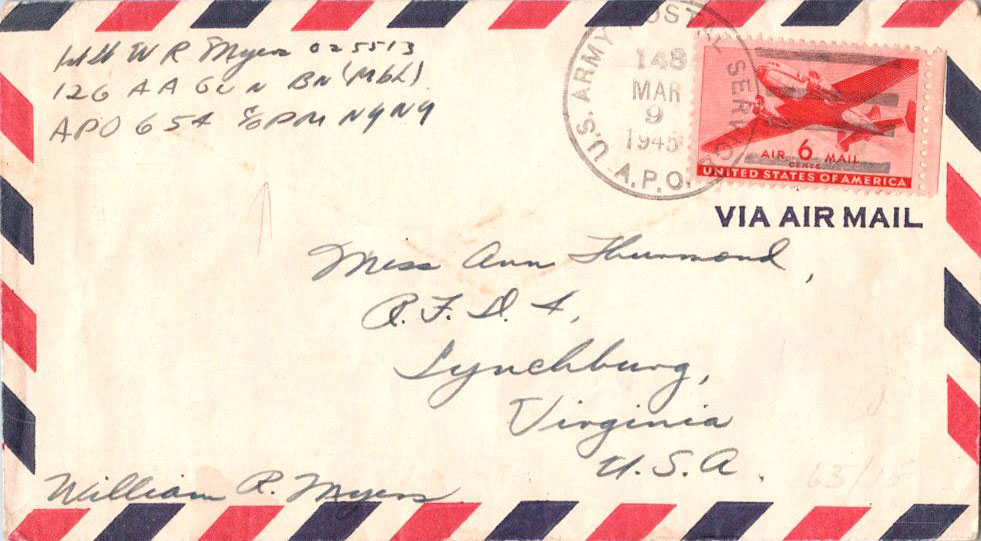 1st Lt W R Myers 025513
126 AA GUN BN (Mbl)
APO 654 c/o PM NY NY
U.S. ARMY POSTAL SERVICE
148
MAR
9
1945
A.P.O.
AIR 6 MAIL
CENTS
UNITED STATES OF AMERICA
VIA AIR MAIL
Miss Ann Thurmond,
R.F.D. 4,
Lynchburg,
Virginia
U.S.A.
William R. Myers